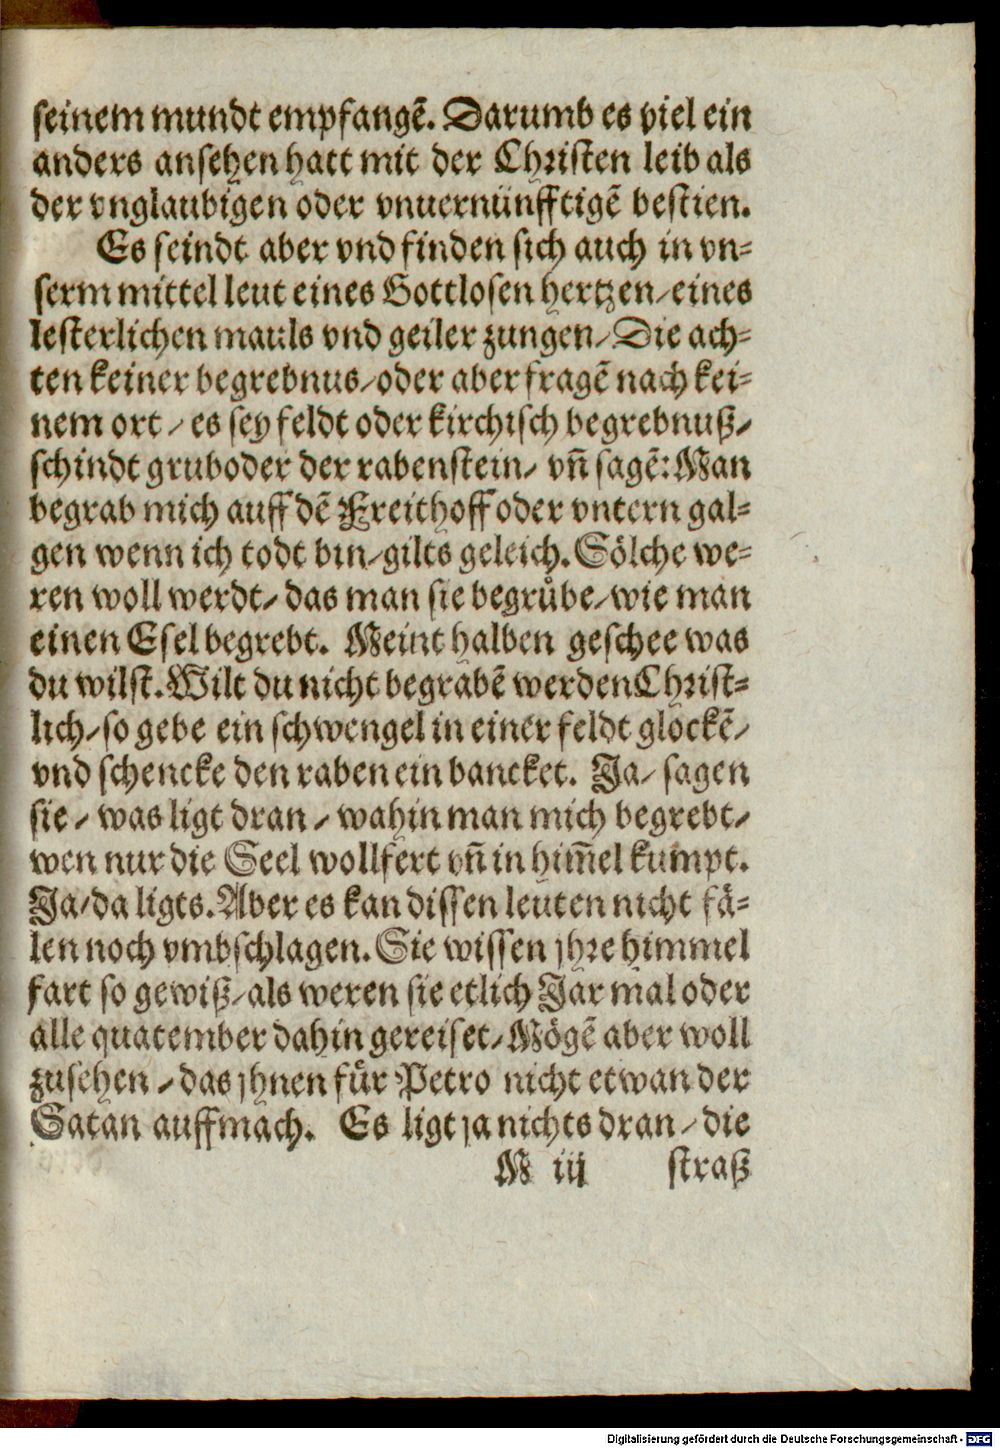 seinem mundt empfangẽ. Darumb es viel ein
anders ansehen hatt mit der Christen leib als
der vnglaubigen oder vnuernünfftigẽ bestien.
Es seindt aber vnd finden sich auch in vn=
serm mittel leut eines Gottlosen hertzen/eines
lesterlichen mauls vnd geiler zungen/Die ach=
ten keiner begrebnus/oder aber fragẽ nach kei=
nem ort/ es sey feldt oder kirchisch begrebnuß/
schindt gruboder der rabenstein/ vñ sagẽ: Man
begrab mich auff dẽ Freithoff oder vntern gal=
gen wenn ich todt bin/gilts geleich. Sölche we=
ren woll werdt/ das man sie begrůbe/wie man
einen Esel begrebt. Meint halben geschee was
du wilst. Wilt du nicht begrabẽ werden Christ=
lich/so gebe ein schwengel in einer feldt glockẽ/
vnd schencke den raben ein bancket. Ja/ sagen
sie/ was ligt dran/ wahin man mich begrebt/
wen nur die Seel wollfert vñ in him̃el kumpt.
Ja/da ligts. Aber es kan dissen leuten nicht fä=
len noch vmbschlagen. Sie wissen jhre himmel
fart so gewiß/als weren sie etlich Jar mal oder
alle quatember dahin gereiset/Mögẽ aber woll
zusehen/das jhnen für Petro nicht etwan der
Satan auffmach. Es ligt ja nichts dran/die
M iij straß
Digitalisierung gefördert durch die Deutsche Forschungsgemeinschaft - DFG